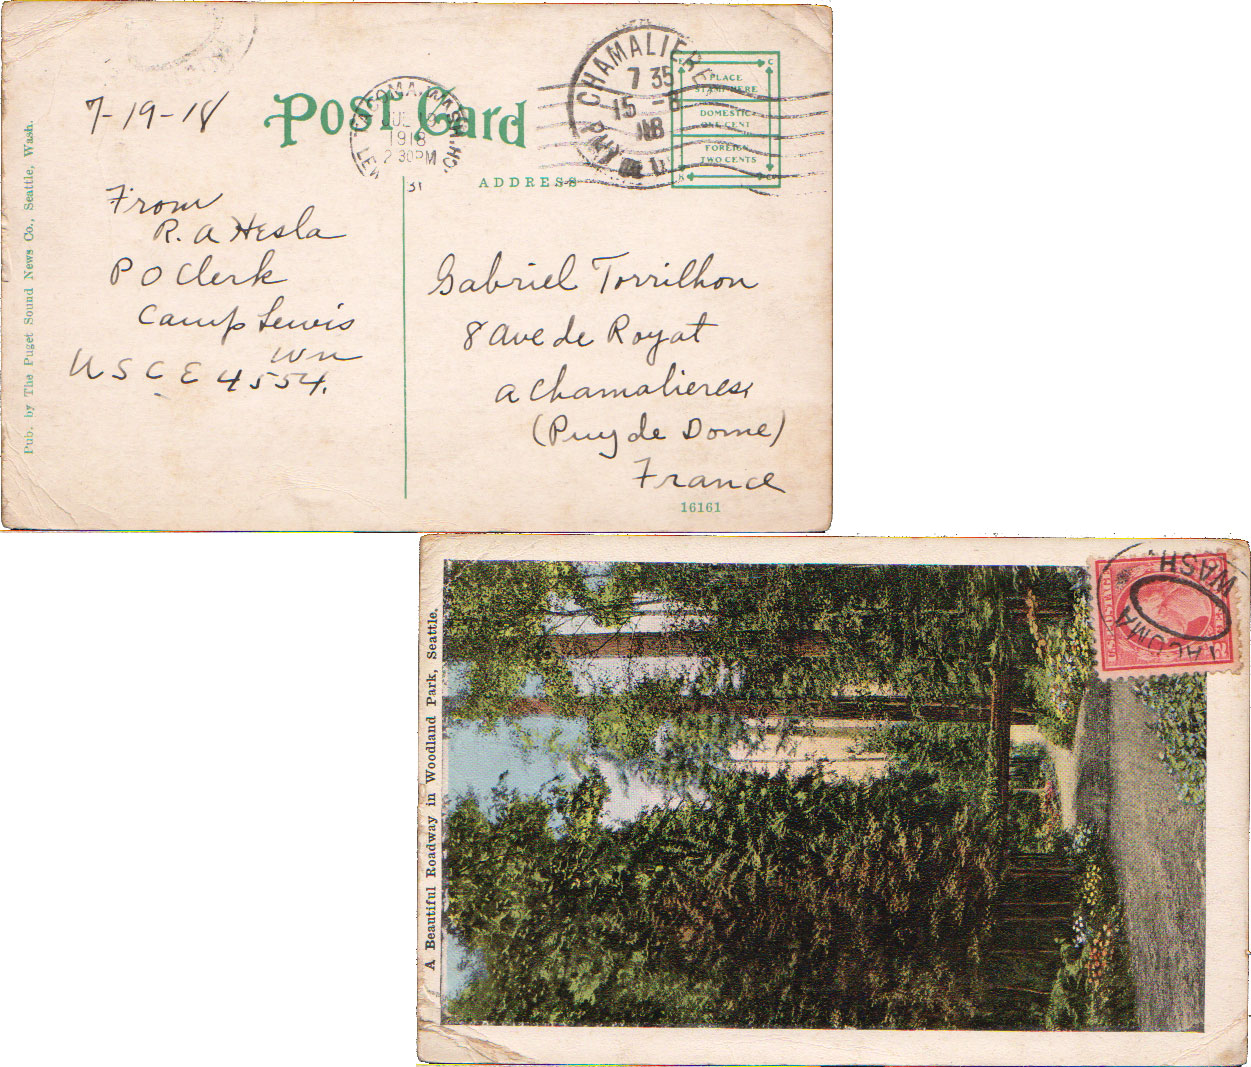 7-19-18
POST Card
TACOMA, WASH.
JUL 19
1918
2 30PM
CHAMALIERE
7 35
15 -8
18
PLACE
STAMP HERE
DOMESTIC
ONE CENT
FOREIGN
TWO CENTS
ADDRESS
From
R. A Hesla
P O Clerk
Camp Lewis
Wn
U S C E 4554.
Gabriel Torrilhon
8 Ave de Royat
a Chamalieres
(Puy de Dome)
France
16161
Pub. by The Puget Sound News Co., Seattle, Wash.
A Beautiful Roadway in Woodland Park, Seattle.
TACOMA
WASH.